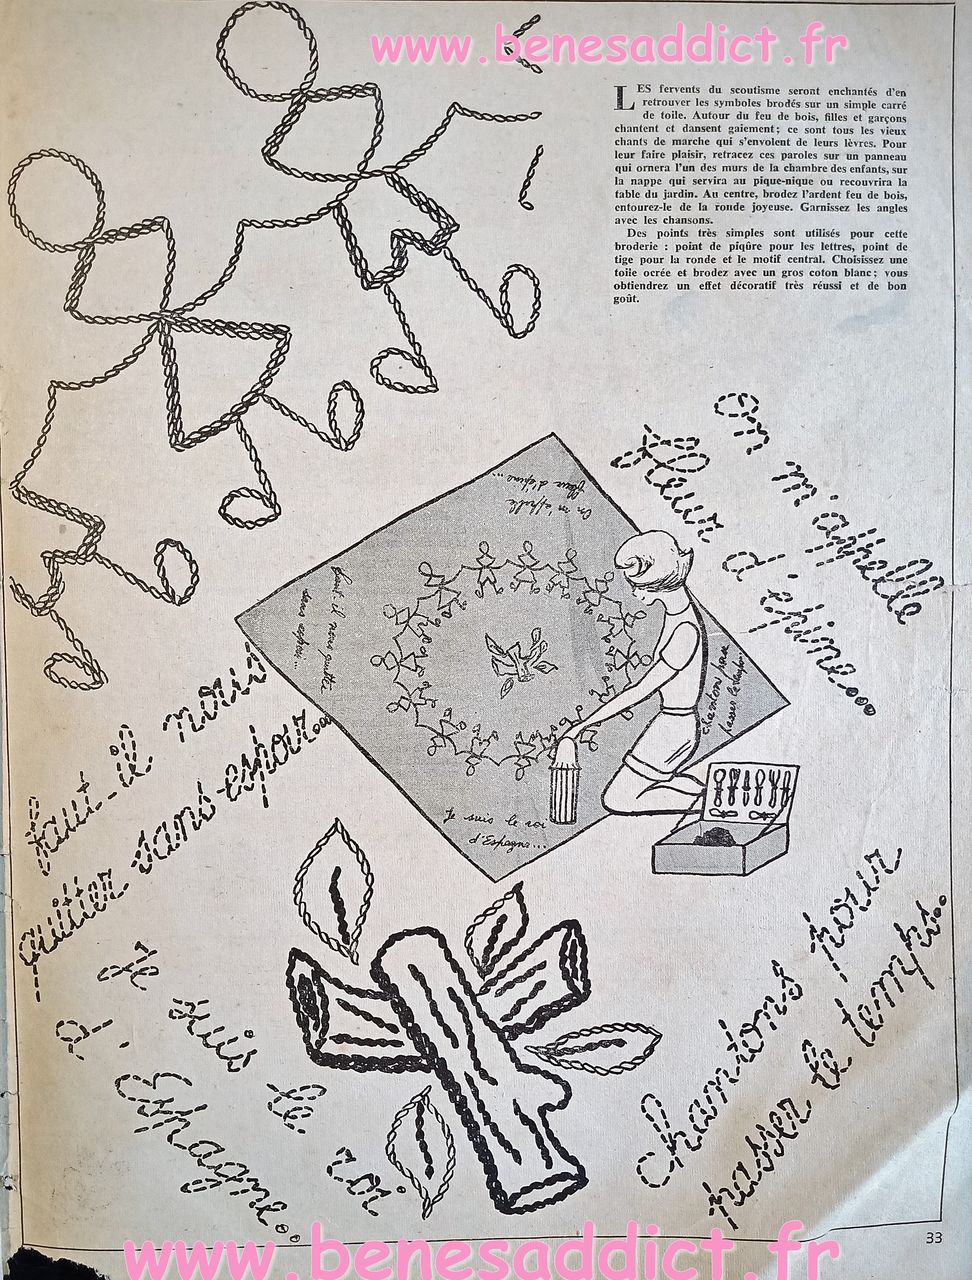 www.benesaddict.fr
LES fervents du scoutisme seront enchantés d'en
retrouver les symboles brodés sur un simple carré
de toile. Autour du feu de bois, filles et garçons
chantent et dansent gaiement; ce sont tous les vieux
chants de marche qui s'envolent de leurs lèvres. Pour
leur faire plaisir, retracez ces paroles sur un panneau
qui ornera l'un des murs de la chambre des enfants, sur
la nappe qui servira au pique-nique ou recouvrira la
table du jardin. Au centre, brodez l'ardent feu de bois,
entourez-le de la ronde joyeuse. Garnissez les angles
avec les chansons.
Des points très simples sont utilisés pour cette
broderie : point de piqûre pour les lettres, point de
tige pour la ronde et le motif central. Choisissez une
toile ocrée et brodez avec un gros coton blanc; vous
obtiendrez un effet décoratif très réussi et de bon
goût.
On m'appelle
fleur d'épine...
On m'appelle
fleur d'épine...
Faut il nous quitter
sans espoir...
Chantons pour
passer le temps
Je suis le roi
d'Espagne...
Faut-il nous
quitter sans espoir...
Je suis le roi
d'Espagne...
Chantons pour
passer le temps..
33
www.benesaddict.fr